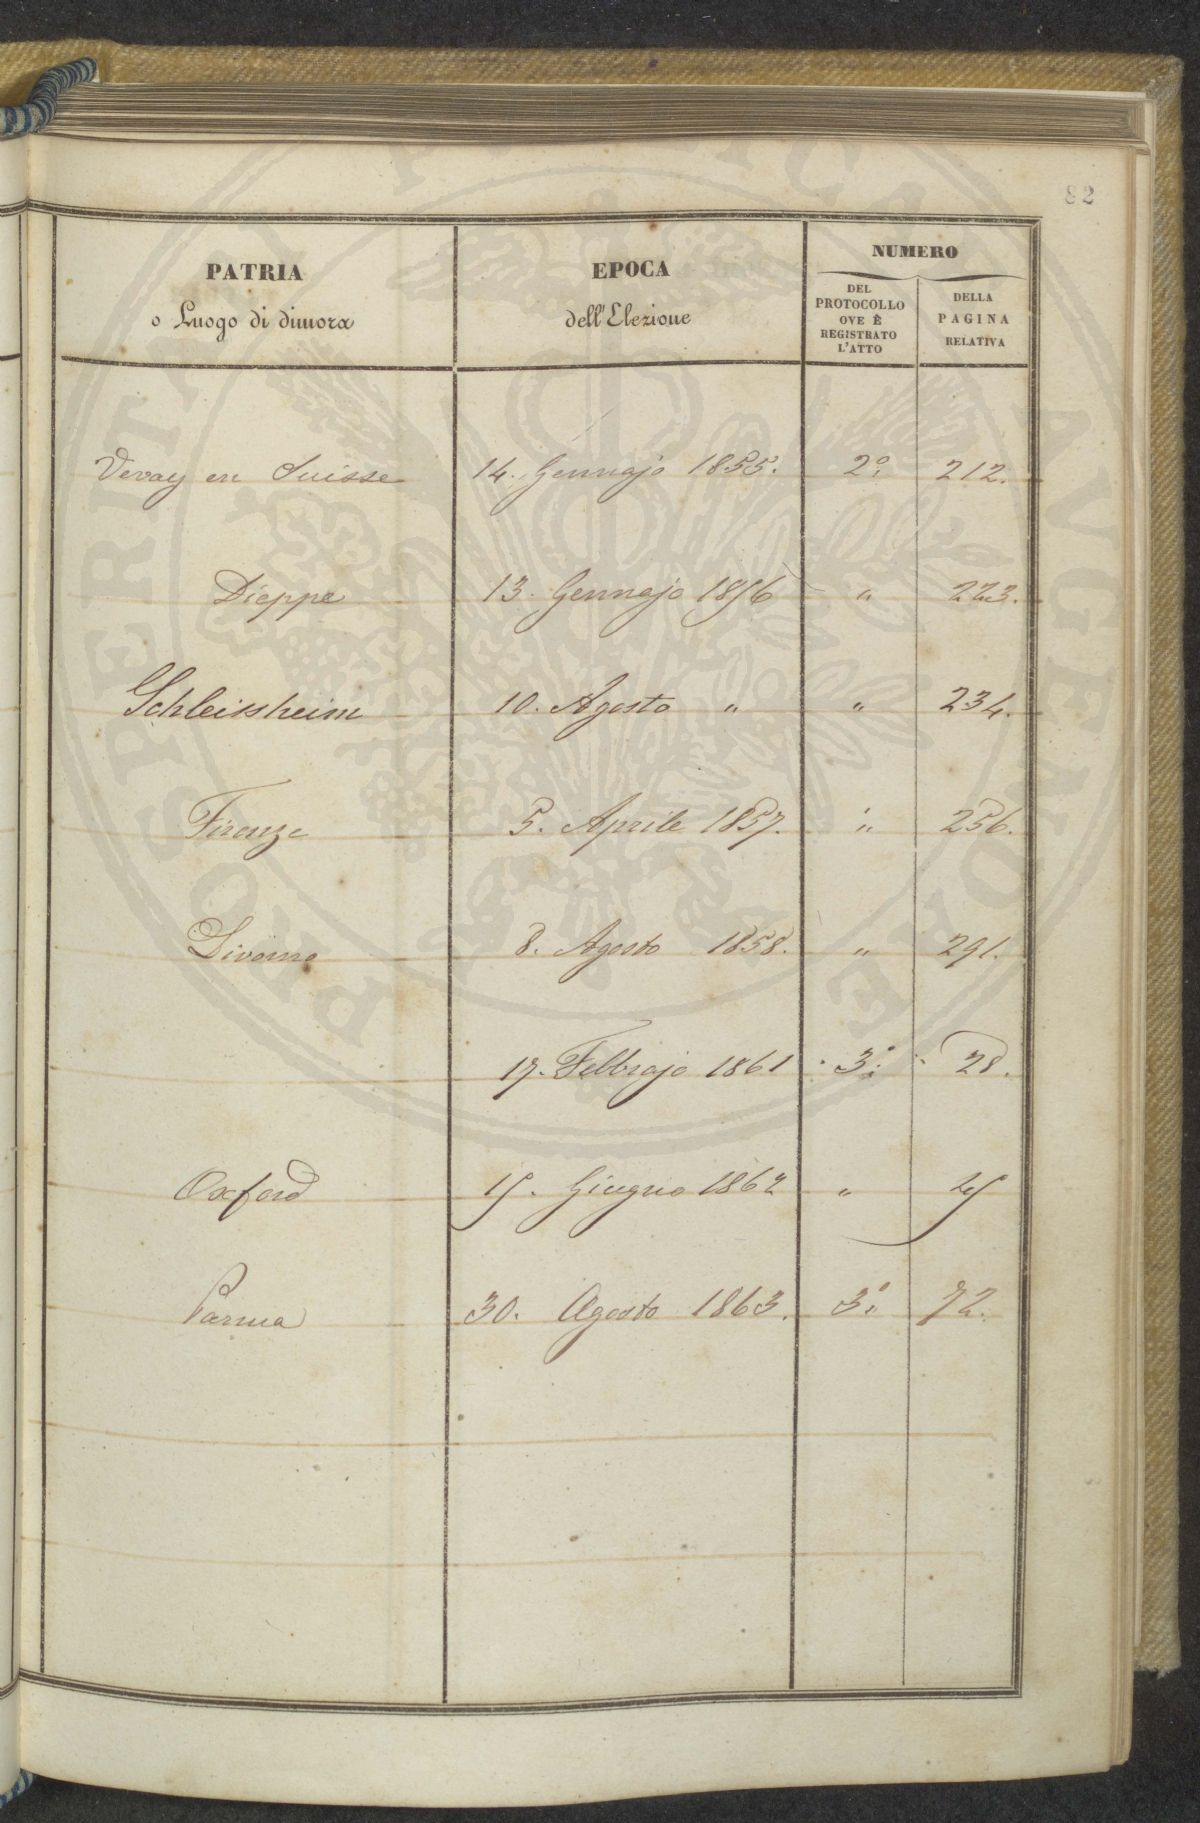 82
PATRIA
o Luogo di dimora
EPOCA
dell'Elezione
NUMERO
DEL
PROTOCOLLO
OVE È
REGISTRATO
L'ATTO
DELLA
PAGINA
RELATIVA
Vevay en Suisse 14. Gennajo 1855. 2° 212.
Dieppe 13. Gennajo 1856 " 223.
Schleissheim 10. Agosto " " 234.
Firenze 5. Aprile 1857. " 256.
Livorno 8. Agosto 1858. " 291.
17. Febbrajo 1861 3° 28.
Oxford 15. Giugno 1862 " 45
Parma 30. Agosto 1863. 3° 72.
PROSPERITATI PUBLICAE AUGENDAE